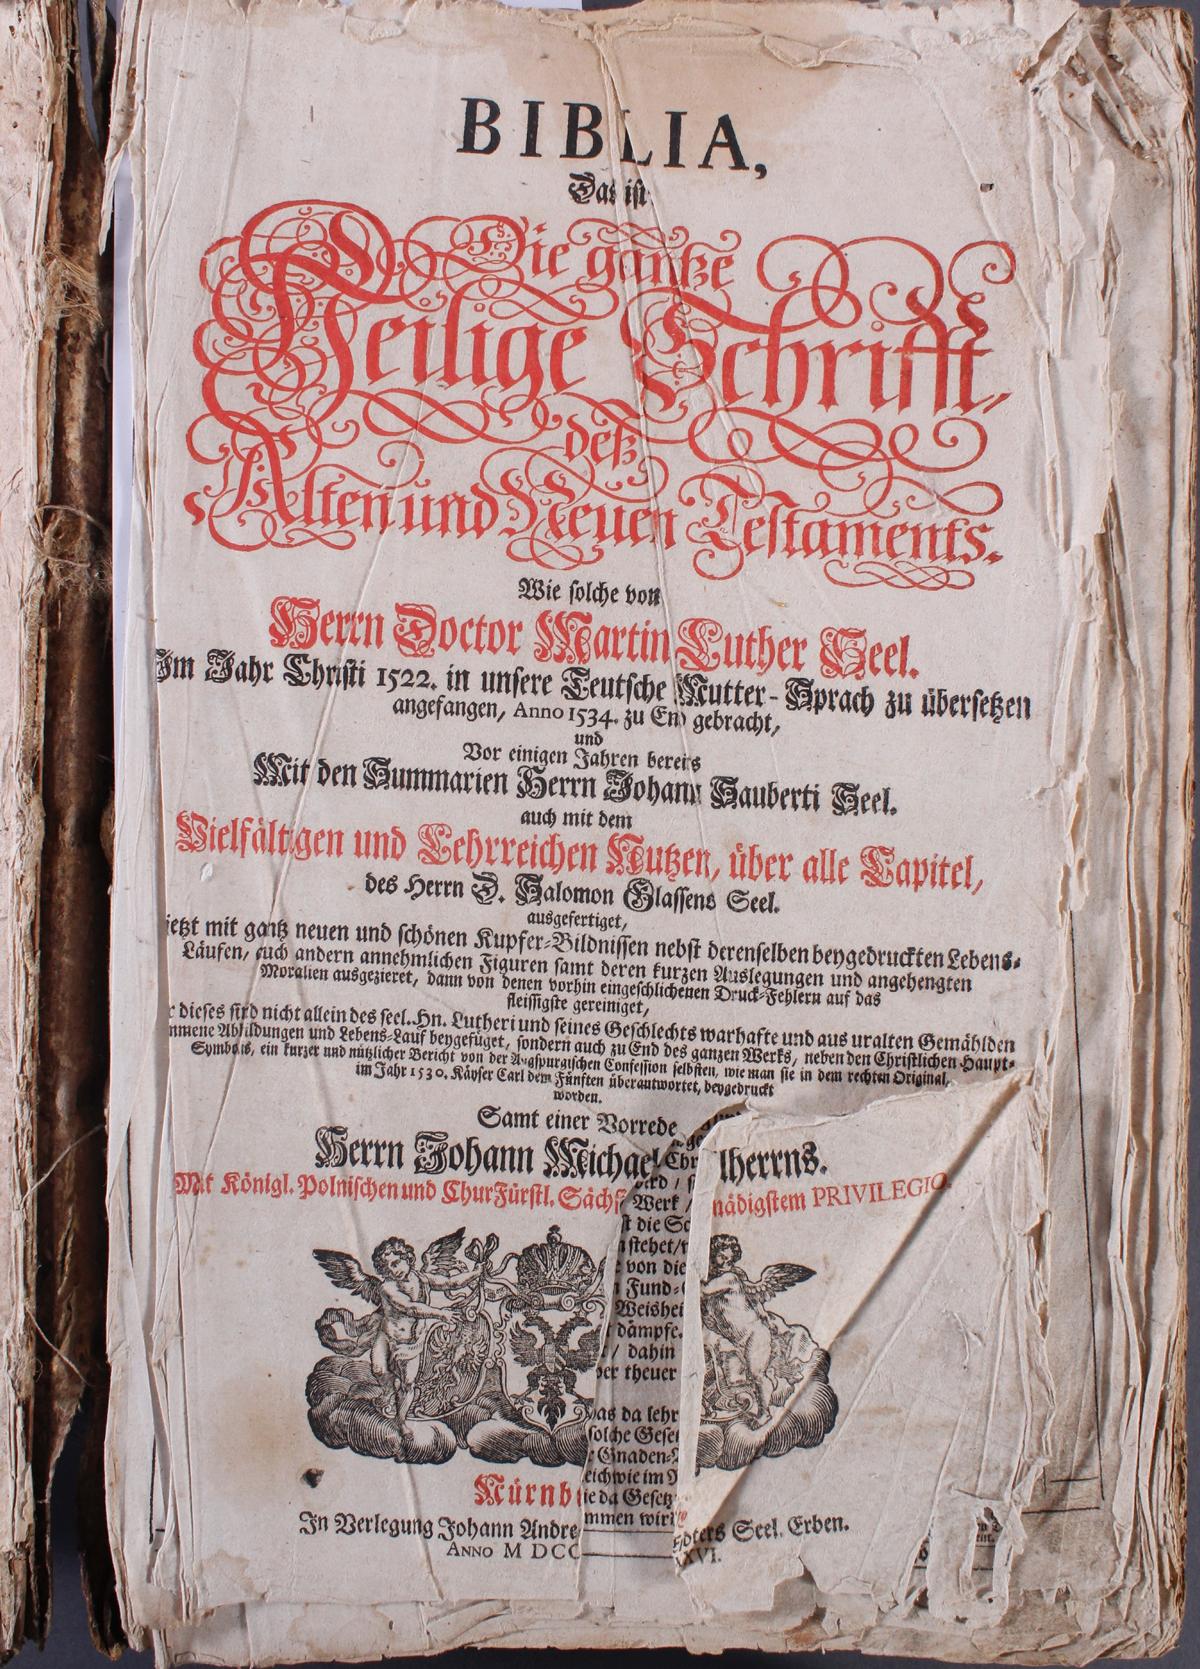 BIBLIA,
Das ist
Die gantze
Heilige Schrifft,
deß
Alten und Neuen Testaments.
Wie solche von
Herrn Doctor Martin Luther Seel.
Im Jahr Christi 1522. in unsere Teutsche Mutter-Sprach zu übersetzen
angefangen, Anno 1534. zu End gebracht,
und
Vor einigen Jahren bereits
Mit den Summarien Herrn Johann Sauberti Seel.
auch mit dem
Vielfältigen und Lehrreichen Nutzen, über alle Capitel,
des Herrn D. Salomon Glassens Seel.
ausgefertiget,
jetzt mit gantz neuen und schönen Kupfer-Bildnissen nebst derenselben beygedruckten Lebens-
Läufen, auch andern annehmlichen Figuren samt deren kurzen Auslegungen und angehengten
Moralien ausgezieret, dann von denen vorhin eingeschlichenen Druck-Fehlern auf das
fleissigste gereiniget,
dieses sind nicht allein des seel. Hn. Lutheri und seines Geschlechts warhafte und aus uralten Gemählden
mmene Abbildungen und Lebens-Lauf beygefüget, sondern auch zu End des ganzen Werks, neben den Christlichen Haupt-
Symbolis, ein kurzer und nützlicher Bericht von der Augspurgischen Confession selbsten, wie man sie in dem rechten Original,
im Jahr 1530. Käyser Carl dem Fünften überantwortet, beygedruckt
worden.
Samt einer Vorrede
Herrn Johann Michael lherrns.
Mit Königl. Polnischen und ChurFürstl. Sächs nädigstem PRIVILEGIO.
Werk /
st die
stehet/
von die
Fund-
Weishei
dämpfe.
/ dahin
theuer
das da lehr
solche Gese
Gnaden-
eichwie im
ie da Gesetz
mmen wir
Nürnb
In Verlegung Johann Andre dters Seel. Erben.
ANNO M DCC XXVI.